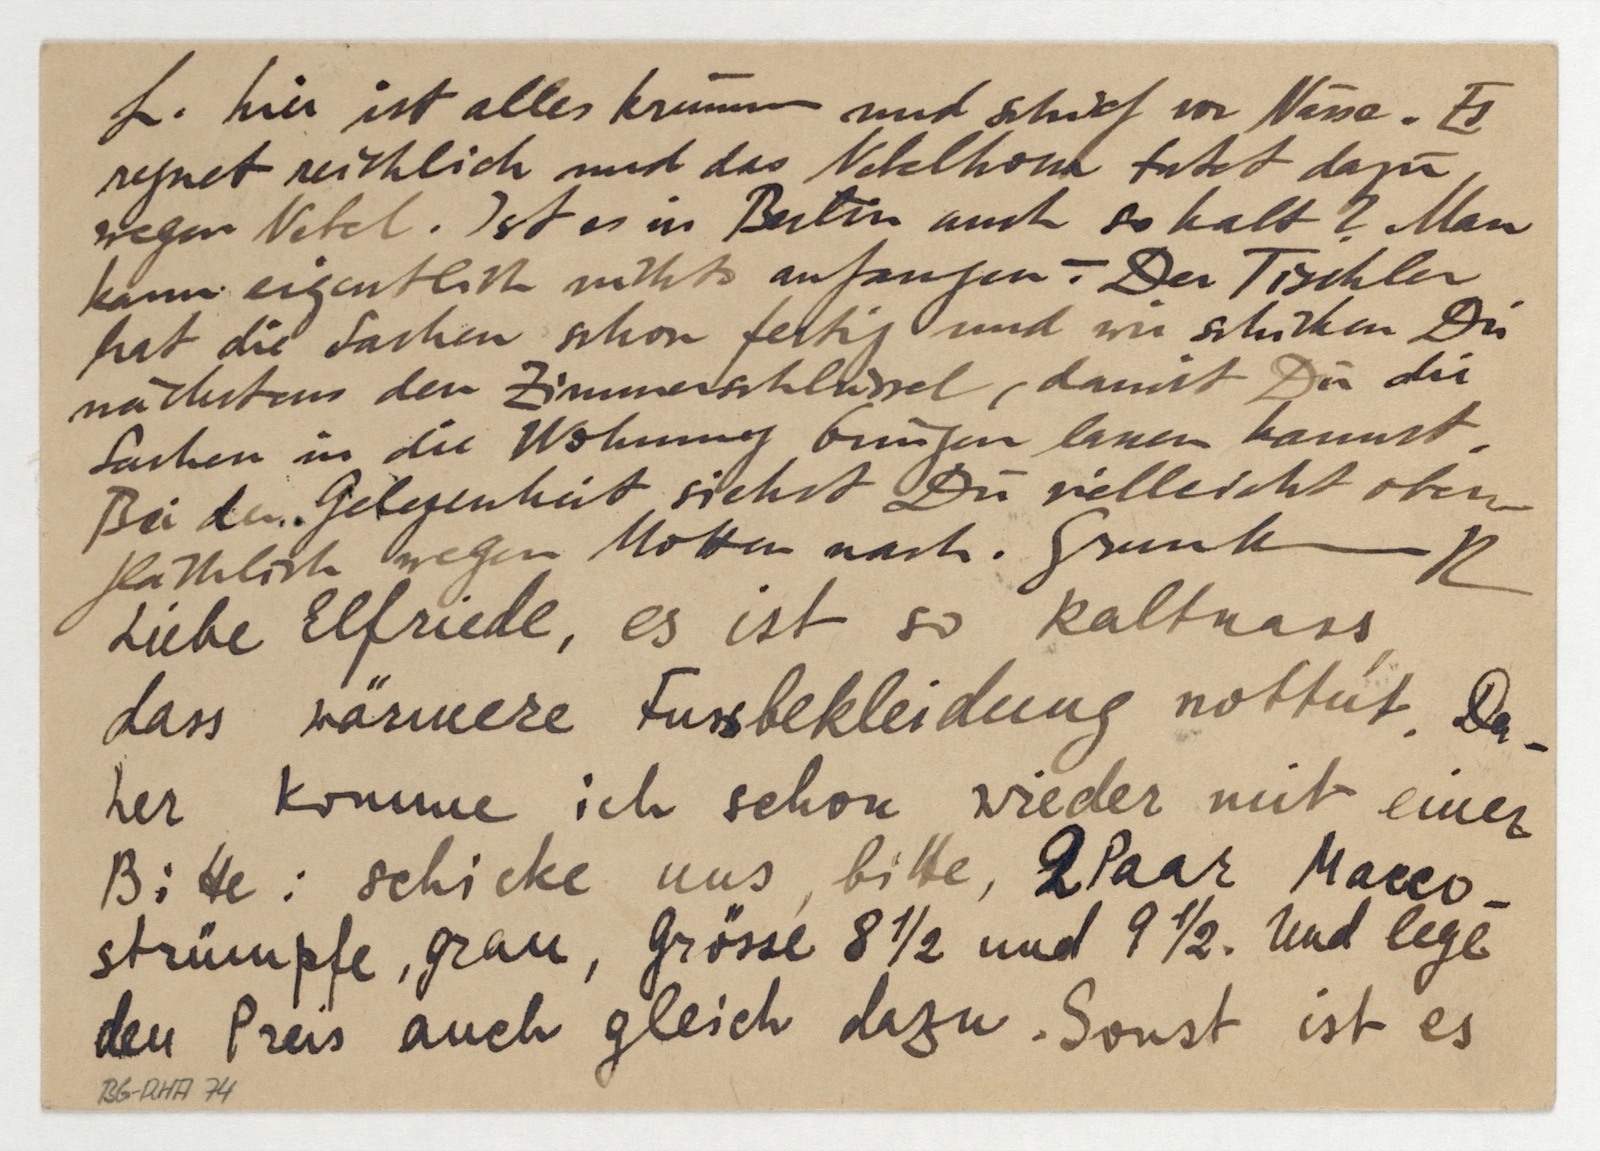 L. hier ist alles krumm und schief vor Nässe. Es
regnet reichlich und das Nebelhorn tutet dazu,
wegen Nebel. Ist es in Berlin auch so kalt? Man
kann eigentlich nichts anfangen. – Der Tischler
hat die Sachen schon fertig und wir schicken Dir
nächstens den Zimmerschlüssel, damit Du die
Sachen in die Wohnung bringen lassen kannst.
Bei der Gelegenheit siehst Du vielleicht oben
wegen Motten nach. Gruss R
Liebe Elfriede, es ist so kaltnass,
dass wärmere Fussbekleidung nottut. Da-
her komme ich schon wieder mit einer
Bitte: schicke uns, bitte, 2 Paar Macco-
strümpfe, grau, Grösse 8 1/2 und 9 1/2. Und lege
den Preis auch gleich dazu. Sonst ist es
BG-RHA 74